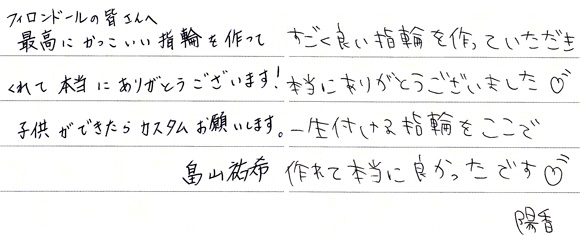 フィロンドールの皆さんへ
最高にかっこいい指輪を作って
くれて本当にありがとうございます!
子供ができたらカスタムお願いします。
畠山祐希
すごく良い指輪を作っていただき
本当にありがとうございました♡
一生付ける指輪をここで
作れて本当に良かったです♡
陽香